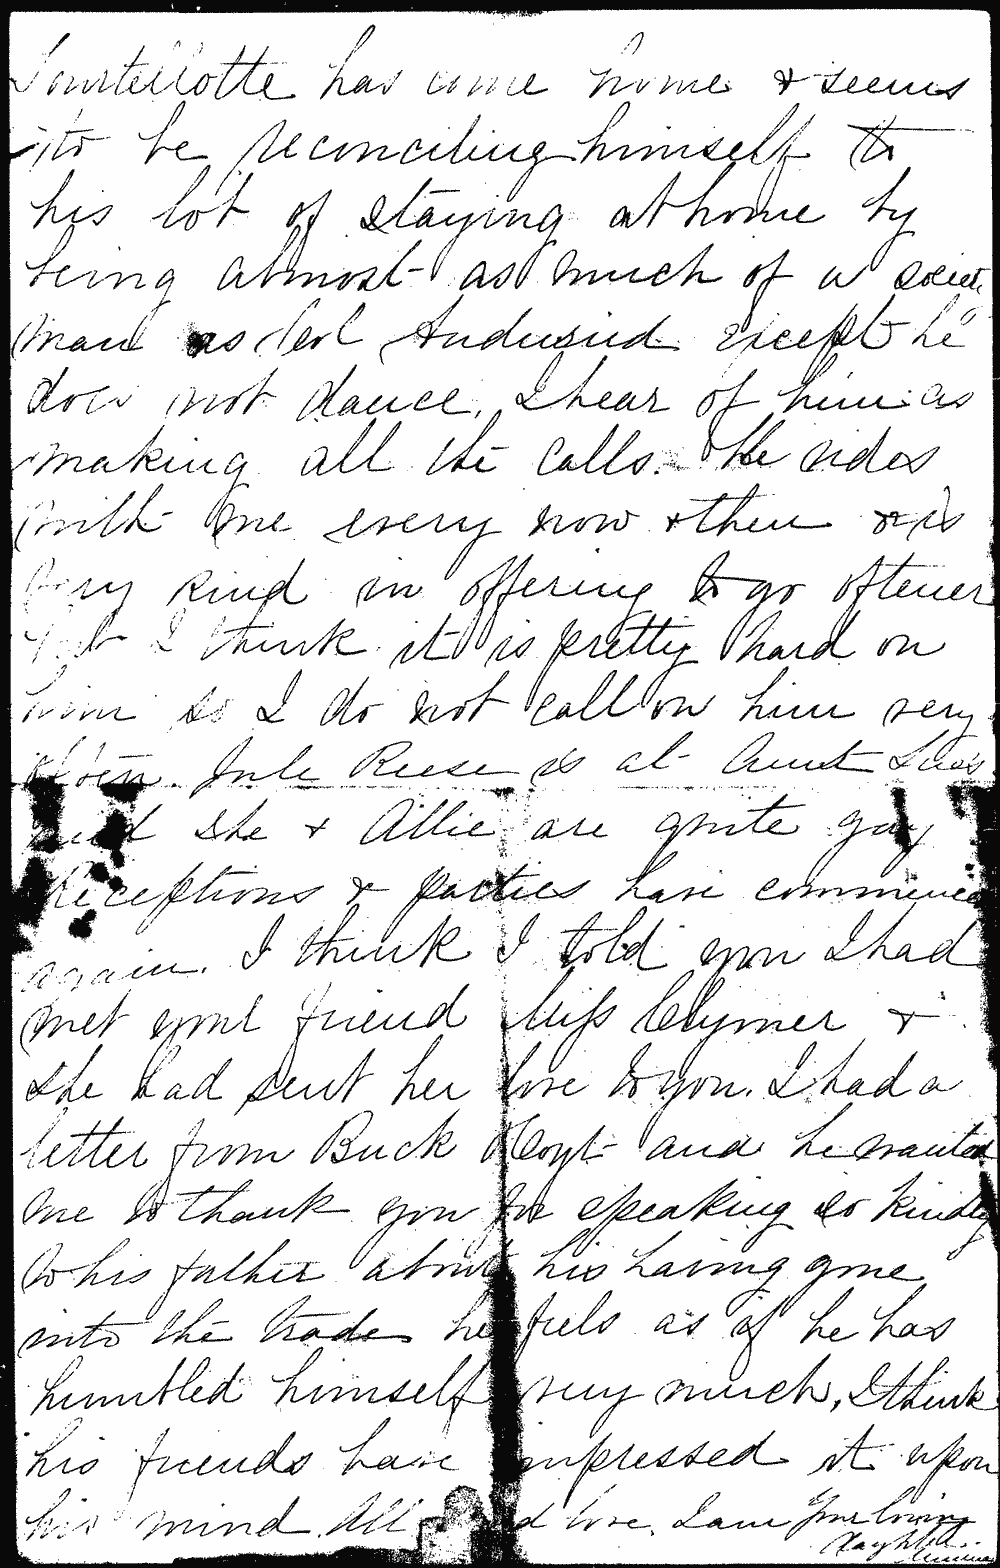 Tourtellotte has come home & seems
to be reconciling himself to
his lot of staying at home by
being almost as much of a society
man as except he
does not dance. I hear of him as
making all the calls. He rides
with me every now & then & is
very kind in offering to go oftener
but I think it is pretty hard on
him so I do not call on him very
often. Jule Reese is at Aunt Lue's
and she & Allie are quite gay
Receptions & parties have commenced
again. I think I told you I had
met your friend Miss Clymer &
she had sent her love to you. I had a
letter from Buck Hoyt and he wanted
me to thank you for speaking so kindly
to his father about his having gone
into the trade he feels as if he has
humbled himself very much, I think
his friends have impressed it upon
his mind. All send love. I am Your loving
Daughter